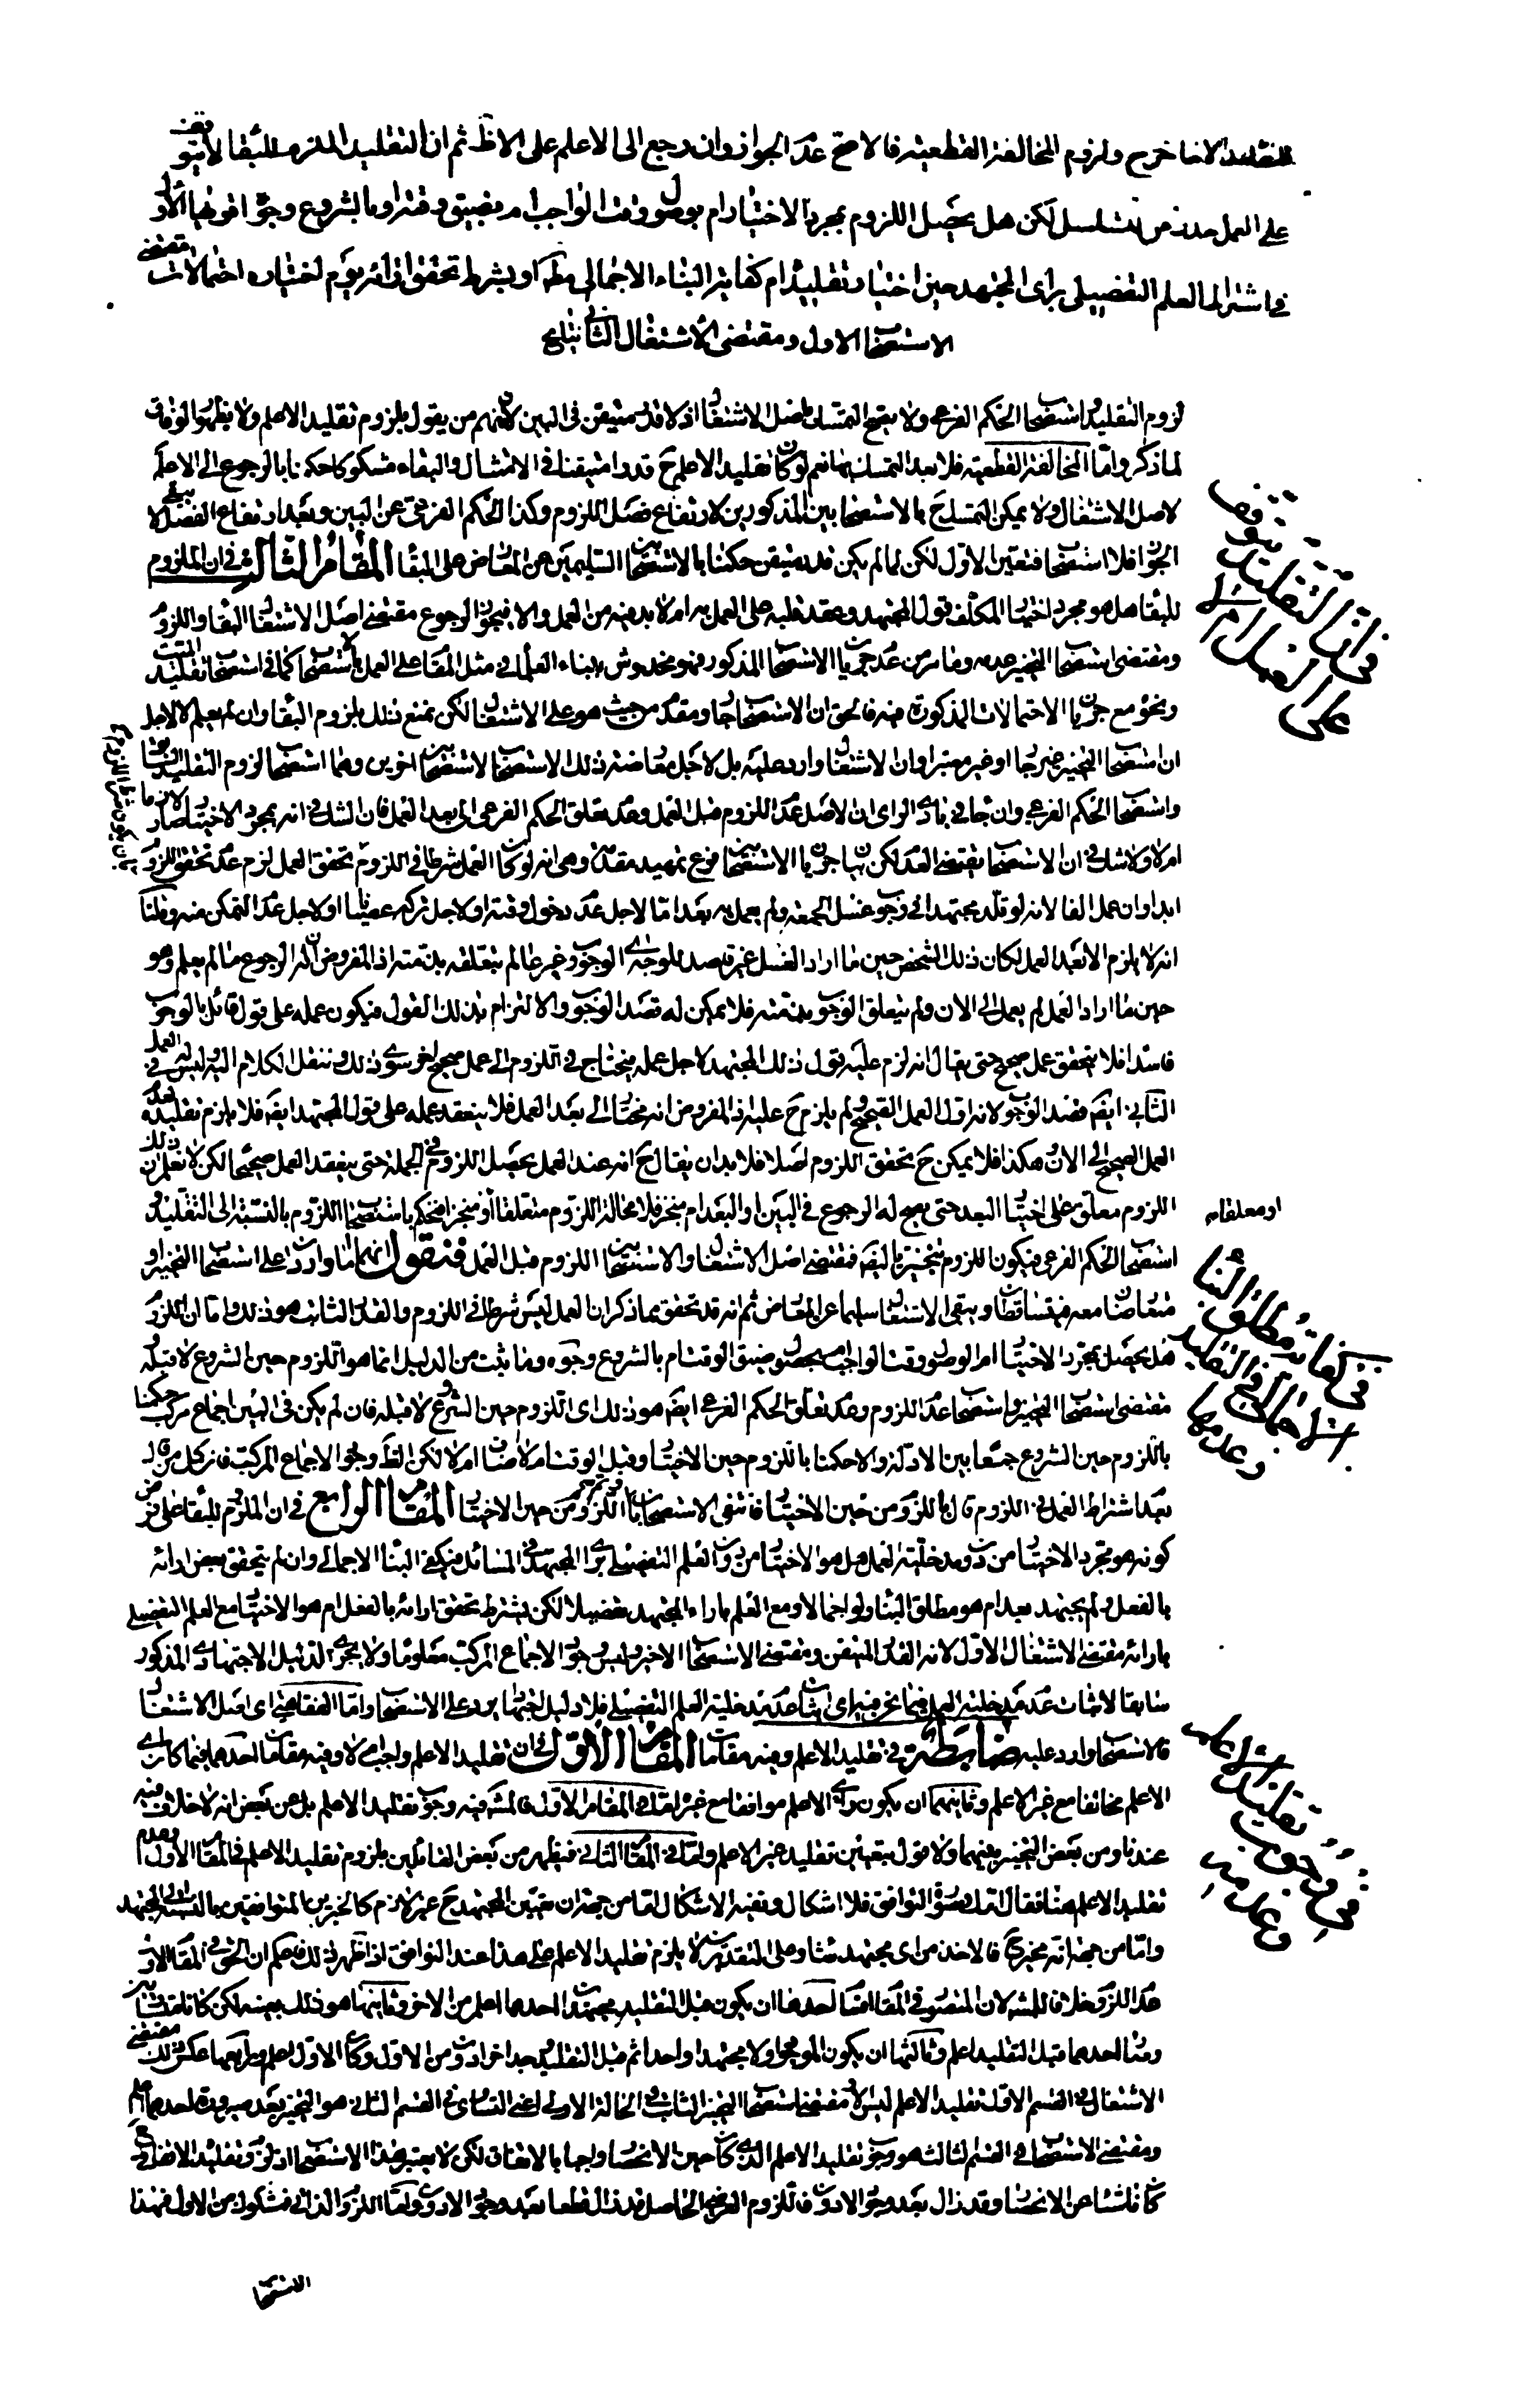 للتقليد الا ما خرج ولزوم المخالفة القطعية فالاصح عدم الجواز وان رجع الى الاعلم على الاظ ثم ان التقليد الملزم للبقا لا يتوقف
على العمل من التسلسل لكن هل يحصل اللزوم بمجرد الاختيار ام بوصول وقت الواجب ام بضيق وقته او بالشروع وجوه اقويها الاول
في اشتراط العلم التفصيلى براى المجتهد حين اختيار تقليده ام كفاية البناء الاجمالى مط او بشرط تحقق اختياره احتمالات مقتضى
الاستصحاب الاول ومقتضى الاشتغال الثانى
لزوم التقليد واستصحاب الحكم الفرعى ولا يصح التمسك باصل الاشتغال اذ لا قدر متيقن فى البين لان منهم من يقول بلزوم تقليد الاعلم
لما ذكر واما المخالفة القطعية فلا بعد التمسك بها نعم لو كان تقليد الاعلم ح قدرا متيقنا فى الامتثال والبقاء مشكوكا حكمنا بالرجوع الى الاعلم
لاصل الاشتغال ولا يمكن التمسك ح بالاستصحابين المذكورين لارتفاع فصل اللزوم وكذا الحكم الفرعى عن البين وبعد ارتفاع الفصل لا يبقى
الجواز فلا استصحاب فتعين الاول لكن لما لم يكن قدر متيقن حكمنا بالاستصحابين السليمين عن المعارض على البقا المقام الثالث فى ان الملزوم
للبقا هل هو مجرد اختيار المكلف قول المجتهد وعقد قلبه على العمل به ام لا بد فيه من العمل والا فيجوز الرجوع مقتضى اصل الاشتغال البقا واللزوم
ومقتضى استصحاب التخيير عدمه وما مر من عدم جريان الاستصحاب المذكور فهو مخدوش ببناء العلما فى مثل المقام على العمل بالاستصحاب كما فى استصحاب تقليد الميت
ونحوه مع جريان الاحتمالات المذكورة فيه فالحق ان الاستصحاب جار ومقدم من حيث هو على الاشتغال لكن نمنع ذلك بلزوم البقا وان لم يعمل لا لاجل
ان استصحاب التخيير غير جار او غير معتبر او ان الاشتغال وارد عليه بل لاجل معارضة ذلك الاستصحاب لاستصحابين اخرين وهما استصحاب لزوم التقليد
واستصحاب الحكم الفرعى وان جا فى بادى الراى ان الاصل عدم اللزوم قبل العمل وعدم تعلق الحكم الفرعى الى بعد العمل فان الشك فى انه بمجرد الاختيار صار لازما
ام لا ولا شك فى ان الاستصحاب يقتضى العدم لكن جريان الاستصحابين فرع تمهيد مقدمة وهى انه لو كان العمل شرطا فى اللزوم تحقق العمل لزم عدم تحقق اللزوم
ابدا وان عمل الفا لانه لو قلد مجتهدا فى وجوب غسل الجمعة ولم يعمل به بعد اما لاجل عدم دخول وقته او لاجل تركه عصيانا او لاجل عدم التمكن منه وقلنا
انه لا يلزم الا بعد العمل لكان ذلك الشخص حين ما اراد الغسل غير قاصد للوجوب اى الوجوب غير عالم بتعلقه بذمته اذ المفروض ان له الرجوع ما لم يعمل وهو
حين ما اراد العمل لم يعمل الى الان ولم يتعلق الوجوب بذمته فلا يمكن له قصد الوجوب والالتزام بذلك القول فيكون عمله على قول قائل بالوجوب
فاسدا فلا يتحقق عمل صحيح حتى يقال انه لزم عليه قول ذلك المجتهد لاجل عمله فيحتاج فى اللزوم الى عمل صحيح اخر سوى ذلك وننقل الكلام اليه وليس له فى العمل
الثانى ايضا قصد الوجوب لانه اول العمل الصحيح ولم يلزم ح عليه اذ المفروض انه مختار الى بعد العمل فلا ينعقد عمله على قول المجتهد ايضا فلا يلزم تقليده لعدم
العمل الصحيح الى الان وهكذا فلا يمكن ح تحقق اللزوم اصلا فلا بد ان يقال ح انه عند العمل يحصل اللزوم فى الجملة حتى ينعقد العمل صحيحا لكن لا نعلم ان ذلك
اللزوم معلق على اختيار البعد حتى يصح له الرجوع فى البين او البعد ام منجز فلا محالة اللزوم متعلقا او منجزا فنحكم باستصحاب اللزوم بالنسبة الى التقليد و
او معلقا منه
استصحاب الحكم الفرعى فيكون اللزوم تنجيزيا ايضا فمقتضى اصل الاشتغال والاستصحابين اللزوم قبل العمل فنقول انهما اما واردان على استصحاب التخيير او
متعارضان معه فيتساقطان ويبقى الاشتغال سليما عن المعارض ثم انه قد تحقق بما ذكر ان العمل ليس شرطا فى اللزوم والقدر الثابت هو ذلك واما ان اللزوم
هل يحصل بمجرد الاختيار ام بوصول وقت الواجب ام يحصل بضيق الوقت ام بالشروع وجوه وما يثبت من الدليل انما هو اللزوم حين الشروع لا قبله
مقتضى استصحاب التخيير واستصحاب عدم اللزوم وعدم تعلق الحكم الفرعى ايضا هو ذلك اى اللزوم حين الشروع لا قبله فان لم يكن فى البين اجماع مركب حكمنا
باللزوم حين الشروع جمعا بين الادلة والا حكمنا باللزوم حين الاختيار وقبل الوقت ام لا ضاق ام لا لكن الظ وجود الاجماع المركب فان كل من قال
بعدم اشتراط العمل فى اللزوم قال باللزوم من حين الاختيار فانتفى الاستصحاب اللزوم من حين الاختيار المقام الرابع فى ان الملزوم للبقا على فرض
كونه هو مجرد الاختيار من دون مدخلية العمل هل هو الاختيار من دون العلم التفصيلى براى المجتهد فى المسائل فيكفى البنا الاجمالى وان لم يتحقق بعض ارائه
بالفعل ولم يجتهد بعد ام هو مطلق البنا ولو اجمالا ومع العلم باراء المجتهد تفصيلا لكن بشرط تحقق ارائه بالفعل ام هو الاختيار مع العلم التفصيلى
بارائه مقتضى الاشتغال الاول لانه القدر المتيقن ومقتضى الاستصحاب الاخير وليس وجود الاجماع المركب معلوما ولا يجرى الدليل الاجتهادى المذكور
سابقا لاثبات عدم مدخلية العمل فيما نحن فيه اى اثبات عدم مدخلية العلم التفصيلى فلا دليل اجتهاديا يرد على الاستصحاب واما الفقاهتى اى اصل الاشتغال
فالاستصحاب وارد عليه ضابطة فى تقليد الاعلم وفيه مقامات المقام الاول فى ان تقليد الاعلم واجب ام لا وفيه مقامان احدهما فيما كان راى
الاعلم مخالفا مع غير الاعلم وثانيهما ان يكون راى الاعلم موافقا مع غيره اما فى المقام الاول فالمشهور فيه وجوب تقليد الاعلم بل عن بعض انه لا خلاف فيه
عندنا ومن بعض التخيير بينهما ولا قول بتعين تقليد غير الاعلم واما فى المقام الثانى فيظهر من بعض القائلين بلزوم تقليد الاعلم فى المقام الاول عدم
تقليد الاعلم هنا فقال اما فى صورة التوافق فلا اشكال ونفيه الاشكال اما من جهة ان تعيين المجتهد ح غير لازم كالخبرين المتوافقين بالنسبة الى المجتهد
واما من جهة انه مخير ح فالاخذ من اى مجتهد شاء وعلى التقديرين لا يلزم تقليد الاعلم على هذا عند التوافق اذا ظهر ذلك فاعلم ان الحق فى المقام الاول
عدم اللزوم خلافا للمشهور لان المتصور فى المقام اقسام احدها ان يكون قبل التقليد مجتهدان احدهما اعلم من الاخر وثانيها هو ذلك بعينه لكن كانا متساويين
وصار احدهما قبل التقليد اعلم وثالثها ان يكون الموجود اولا مجتهدا واحدا ثم قبل التقليد وجد اخر ادون من الاول وكان الاول اعلم ورابعها عكس ذلك مقتضى
الاشتغال فى القسم الاول تقليد الاعلم ليس الا ومقتضى استصحاب التخيير الثابت فى الحالة الاولى اعنى التساوى فى القسم الثانى هو التخيير بعد صيرورة احدهما اعلم
ومقتضى الاستصحاب فى القسم الثالث هو وجوب تقليد الاعلم الذى كان حين الانحصار واجبا بالاتفاق لكن لا يعتبر هذا الاستصحاب اذ لزوم تقليد الافضل ح
كان ناشئا عن الانحصار وقد زال بعد وجود الادون فاللزوم العرضى الحاصل قد زال قطعا بعد وجود الادون واما اللزوم الذاتى فمشكوك من الاول فهذا
الاستصحاب
فى ان التقليد يتوقف
على العمل ام لا
فى كفاية مطلق البنا
الاجمالى فى التقليد
وعدمها
فى وجوب تقليد الاعلم
وعدمه